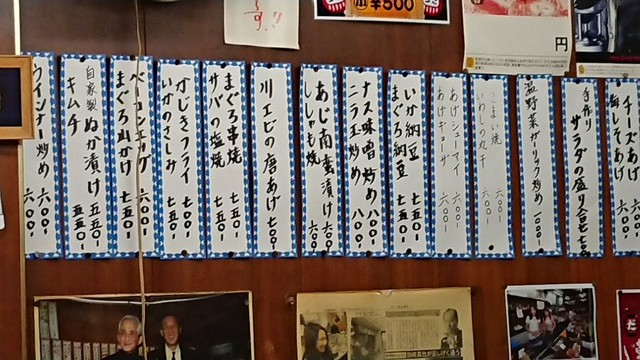 ¥500
円
チーズあげ 六〇〇
手作り サラダの盛り合せ 七〇〇
温野菜ガーリック炒め 一〇〇〇-
こまい焼 六〇〇-
いわしの丸干 六〇〇-
あげシューマイ 六〇〇-
あげギョーザ 六〇〇-
いか納豆 七五〇-
まぐろ納豆 七五〇-
ナス味噌炒め 八〇〇-
ニラ玉炒め 八〇〇-
あじ南蛮漬け 六〇〇-
ししゃも焼 六〇〇-
川エビの唐あげ 七〇〇-
まぐろ串焼 七五〇-
サバの塩焼 七五〇-
かじきフライ 七五〇-
いかのさしみ 五五〇-
ベーコンエッグ 六〇〇-
まぐろ山かけ 七五〇-
自家製 ぬか漬け 五五〇-
キムチ 五五〇-
ウインナー炒め 六〇〇-